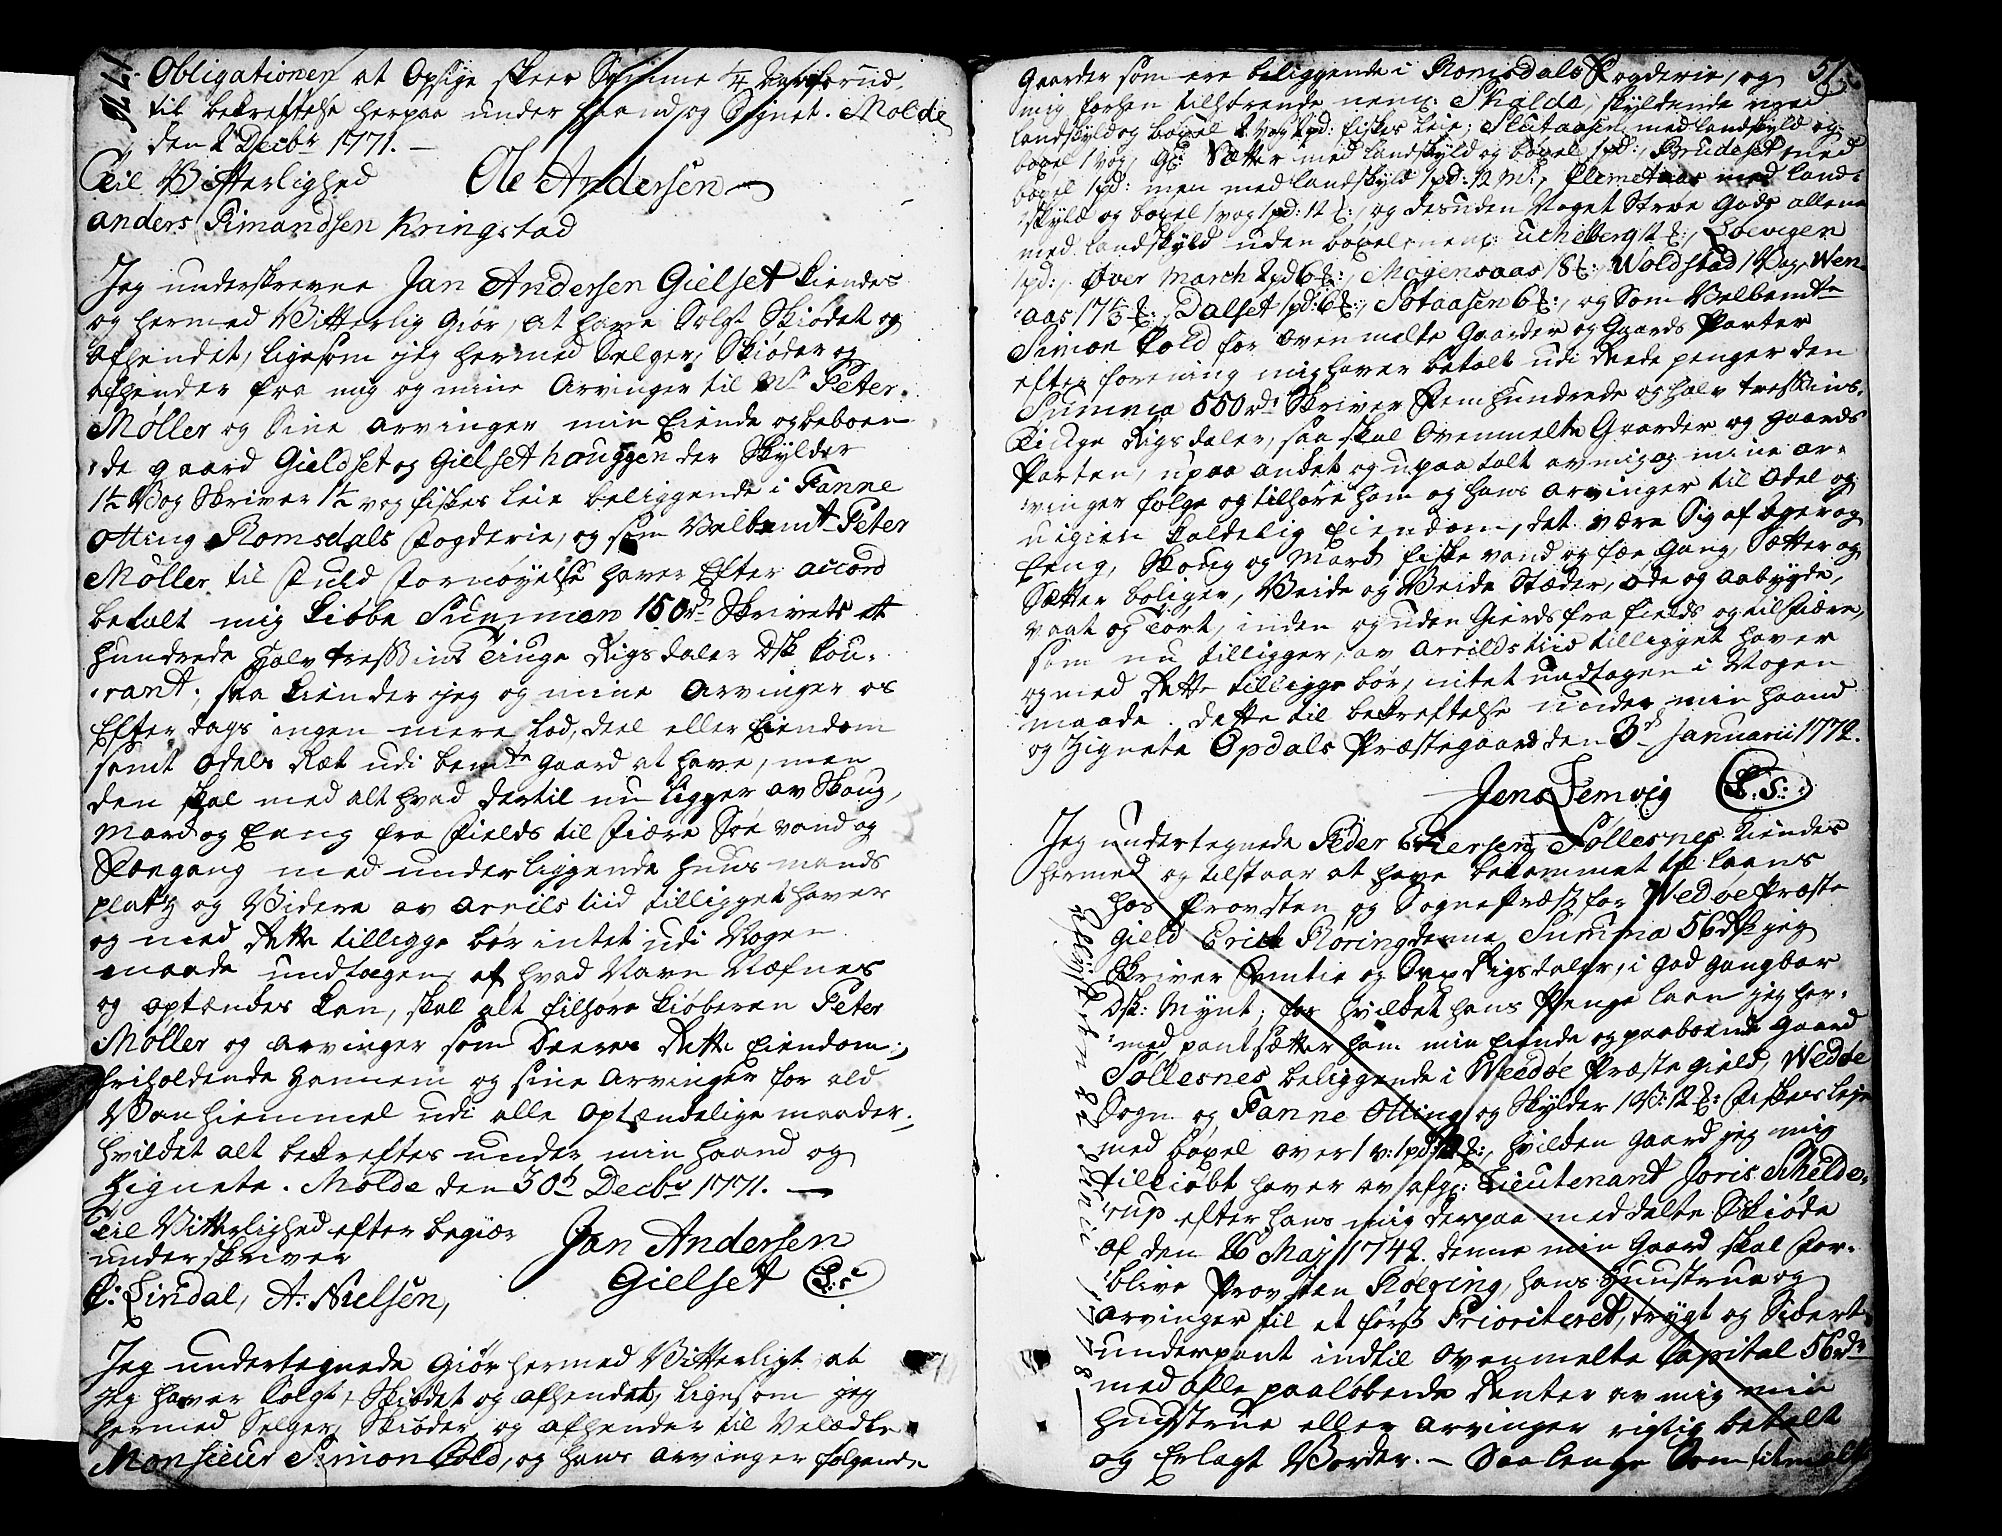 1771.
Obligationen at Opsige skeer Somme 1/4 Aar forud,
til bekreftelse herpaa under Haand og Signet. Molde
den 2 Decbr 1771. —
Til Vitterlighed Ole Andersen
anders Simandsen Kringstad
Jeg underskrevne Jan Andersen Gielset kiendes
og hermed Vitterlig Giør, at have Solgt Skiødet og
afhendet, ligesom jeg hermed Selger, Skiøder og
afhender fra mig og mine Arvinger til Mr Peter
Møller og Sine Arvinger min Eiende og beboen-
de gaard Gieldset og Gielset houggen der Skylder
1½ Vog Skriver 1½ vog fiskes Leie beliggende i Fanne
Otting Romsdals Fogderie, og som Velbemte Peter
Møller til Fuld Fornøyelse haver Efter accord
betalt mig Kiøbe Summen 150rd Skrivets et
hundrede halv tresindstiuge Rigsdaler Dsk Cou-
rant; saa kiender jeg og mine Arvinger os
Efter dags ingen mere Lod, deel eller Eiendom
samt Odels Ræt udi bemte Gaard at have, men
den skal med alt hvad dertil nu ligger av Skoug,
Marck og Eng fra Fields til Fiære Søe vand og
Fægang med underliggende Huusmands
platz og Videre av Arrilstiid tilligget haver
og med Rette tilligge bør intet udi Nogen
maade undtagen af hvad Navn Næfnes
og optændes kan, skal alt tilhøre kiøberen Peter
Møller og Arvinger som Deeres Rette Eiendom;
friholdende Hannem og sine Arvinger for ald
Vanhiemmel udi alle Optændelige maader;
hvilket alt bekreftes under min haand og
Zignete. Molde den 30t Decbr 1771. —
Til Vitterlighed efter begiær
underskriver
Jan Andersen
Gielset (L:S:)
P: Lindal, A: Nielsen,
Jeg undertegnede Giør hermed Vitterligt at
jeg haver Solgt, Skiødet og afhendet, ligesom jeg
hermed Selger, Skiøder og afhender til Velædle
Monsieur Simon Cold, og hans Arvinger følgende
51.
Gaarder som ere beliggende i Romsdals Fogderie, og
mig forhen tilhørende nemb: Skalde, skyldende med
Landskyld og bøxel 2 vog 2pd: fiskes Leie; Slutaasen med landskyld og
bøxel 1 vog, Sætter med landskyld og bøxel 1pd:, Brudeset med
bøxel 1pd: men med Landskyld 1pd: 12 Mk:, Klemetaas med land-
skyld og bøxel 1 vog 1pd: 12 , og desuden Noget Strøe Gods allene
med Landskyld uden bøxel nemb: Uchelberg 12 , Loevigen
1pd:, Øver March 2pd 6 , Mogensaas 18 , Woldstad 1 Vog, Wen-
aas 17⅓ , Dalset 1pd: 6 , Sotaasen 6 , og Som Velbemte
Simon Cold for Ovenmelte Gaarder og Gaards Parter
efter forening mig haver betalt udi Reede penger den
Summa 550rd: Skriver Fem hundrede og halv tresinds-
tiuge Rigsdaler, saa skal Ovenmelte Gaarder og gaards
Parten, upaa andet og upaa talt av mig og mine Ar-
vinger følge og tilhøre ham og hans Arvinger til Odel og
uigien kaldelig Eiendom, det være Sig af Ager og
Eeng, Skoug og Mark fiskevand og fæe Gang, Sætter og
Sætter boliger, Veide og Veide Stæder, Øde og Aabygde,
Vaat og Tørt, inden og uden Gierds fra fields og til Fiære,
som nu tilligger, av Arrildstiid tilligget haver
og med Rette tilligge bør, intet undtagen i Nogen
maade. Dette til bekreftelse under min haand
og Zignete Opdals Præstegaard den 3d Januarii 1772.
Jens Lemvig (L:S:)
Jeg undertegnede Peder Sollesnes kiendes
hermed og tilstaar at have bekommet til laans
hos Provsten og Sogne Præst for Wedøe Præste
Gield Erich Roring denne Summa 56rd jeg
Skriver Femtie og Sex Rigsdaler, i God Gangbar
Dsk: Mynt; for hvilket hans Penge laan jeg her-
med pantsætter ham min Eiende og paaboende Gaard
Sollesnes beliggende i Weedøe Præste gield, Wedøe
Sogn og Fanne Otting og Skylder 1 V: 12 : Fiskes leje
med bøxel over 1 v: 1pd: , hvilken Gaard jeg mig
tilkiøbt haver av afg: Lieutenant Joris Schelde-
rup efter hans mig derpaa meddelte Skiøde
af den 26 Maj 1742. denne min Gaard skal for-
blive Provsten Roering, hans Hustrue og
Arvinger til et først Prioriteret, trygt og Sikkert
underpant indtil Ovenmelte Capital 56rd
med alle paaløbende Renter av mig min
Hustrue eller Arvinger rigtig betalt
og Erlagt Vorder. — Saalenge Som